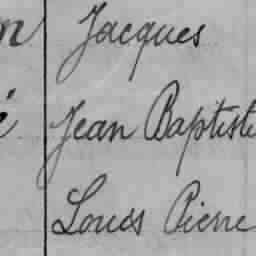 Jacques
Jean Baptiste
Louis Pierre